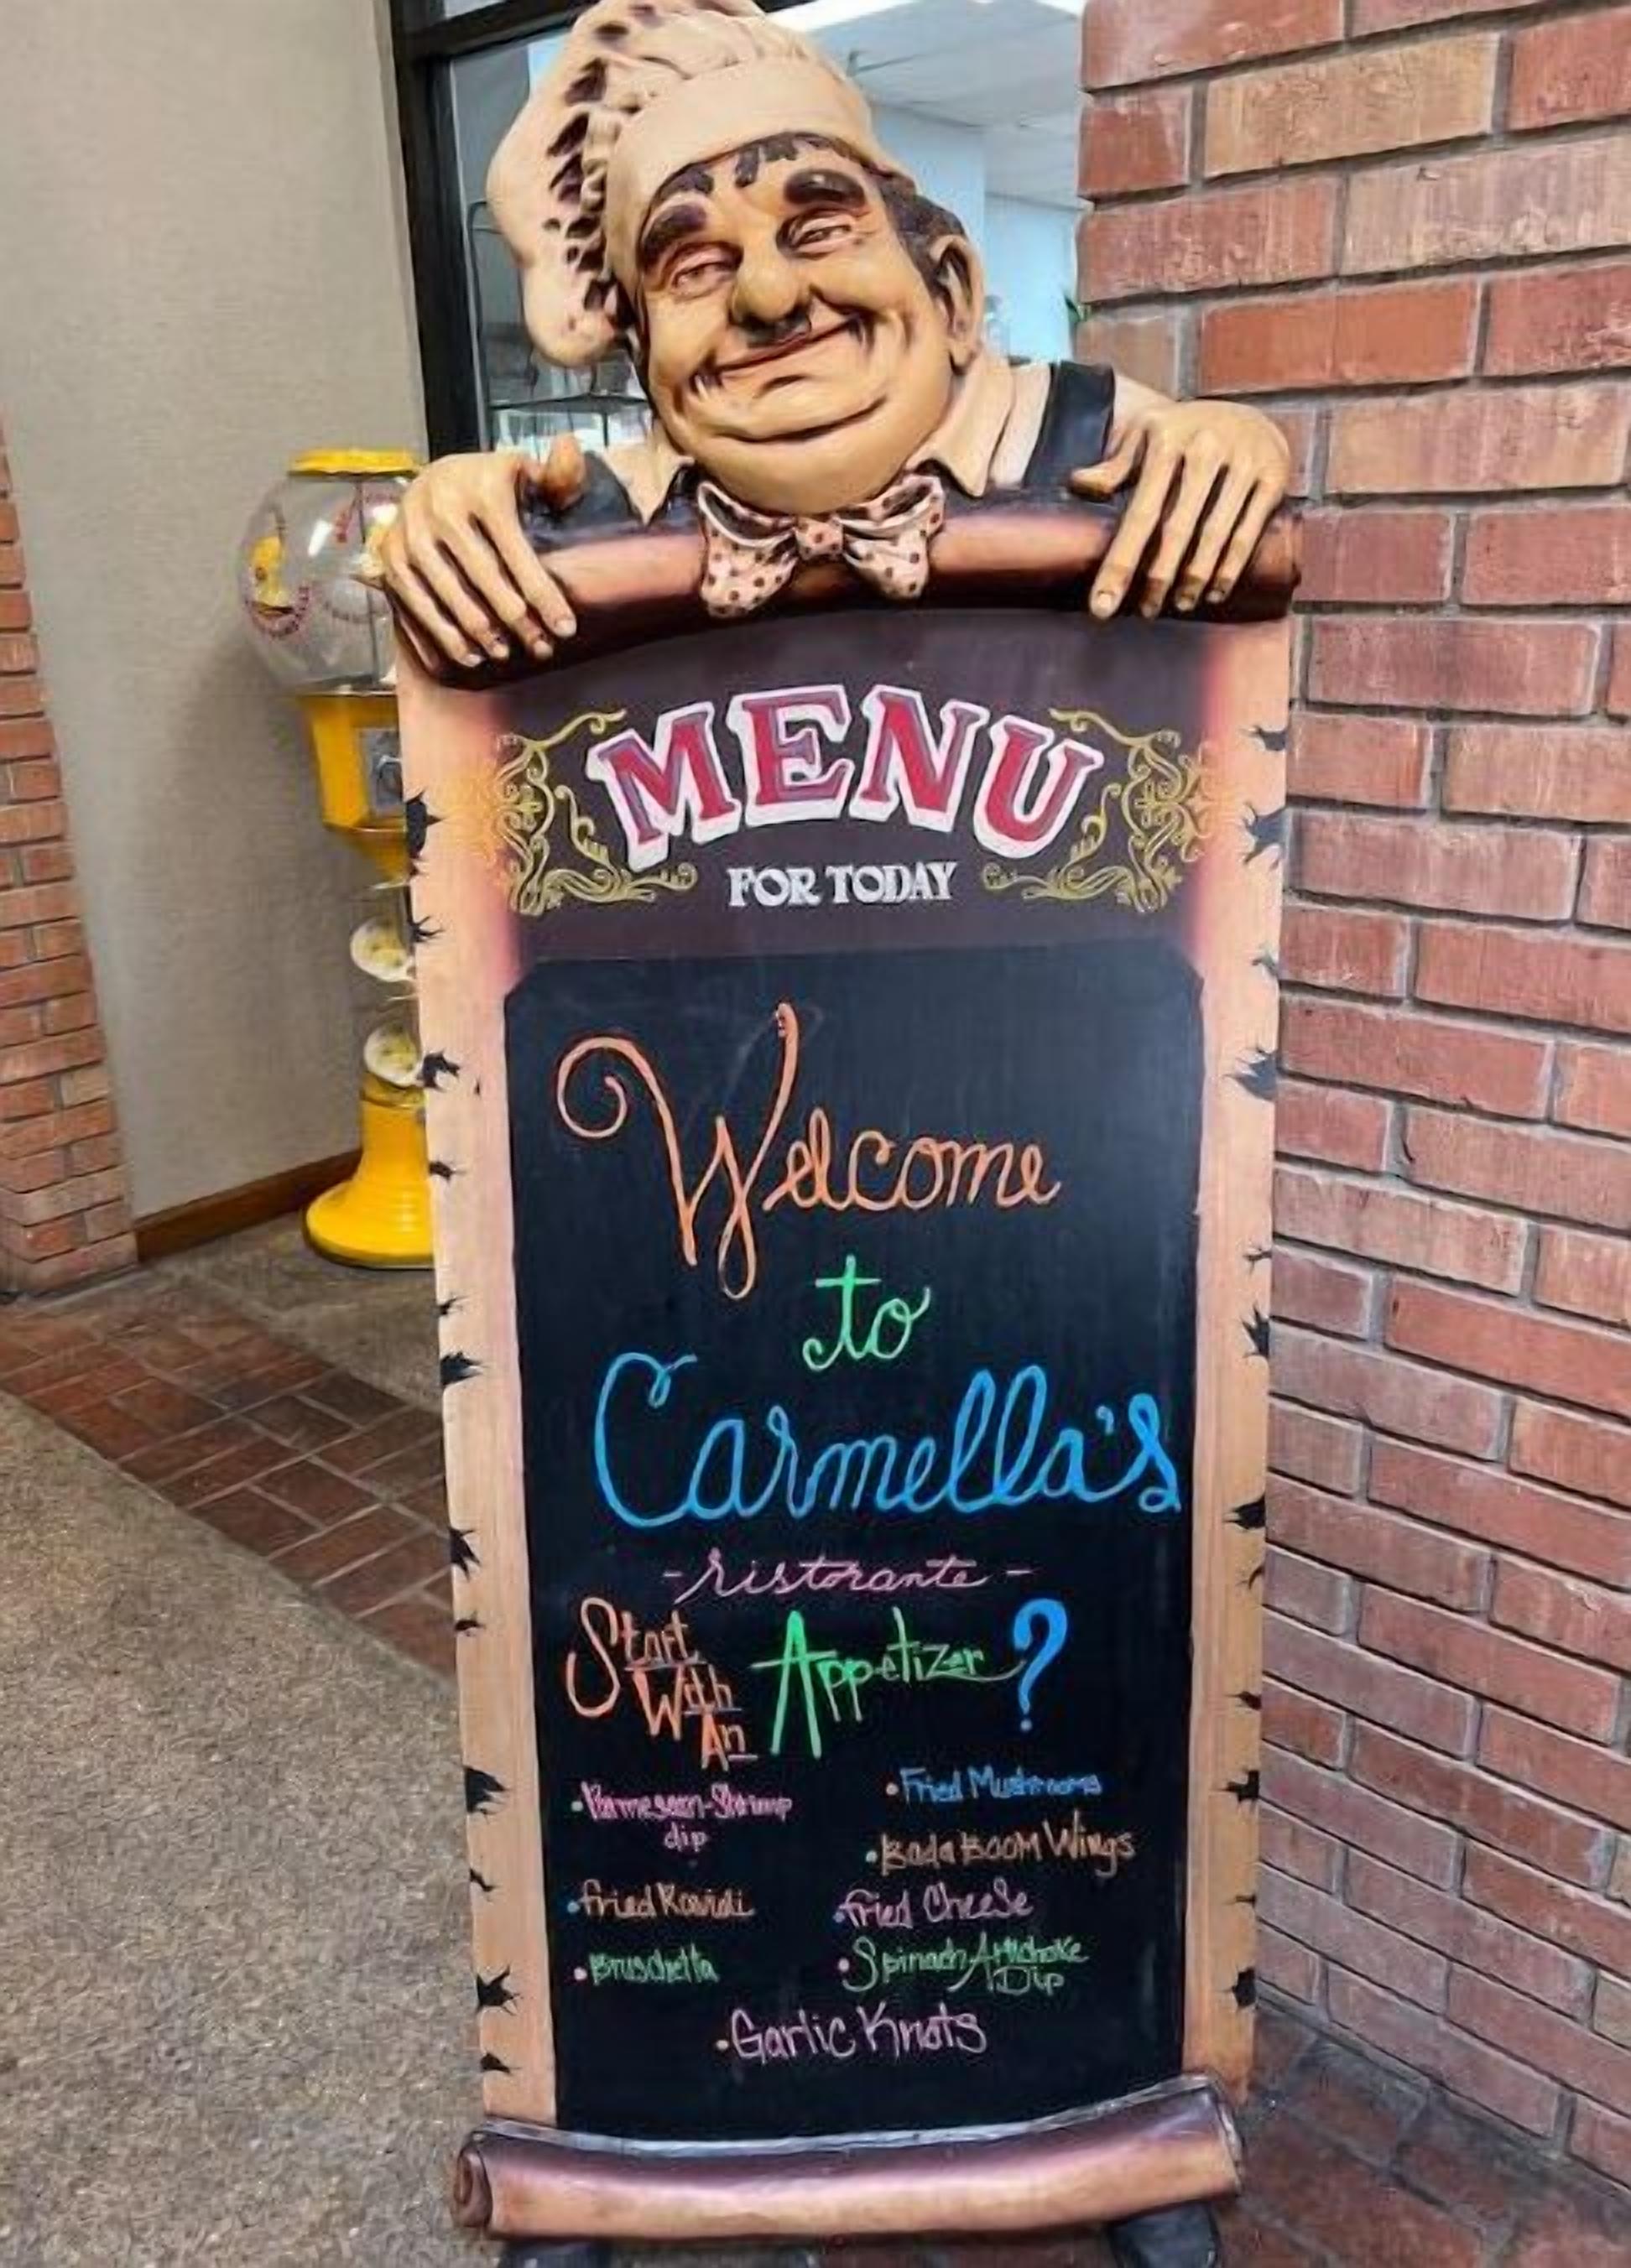 MENU
FOR TODAY
Welcome
to
Carmella's
-ristorante-
Start
With
An
Appetizer?
•Parmesean-Shrimp
dip
•Fried Mushrooms
•Bada BOOM Wings
•Fried Ravioli
•Fried Cheese
•Bruschetta
•Spinach Artichoke
Dip
•Garlic Knots